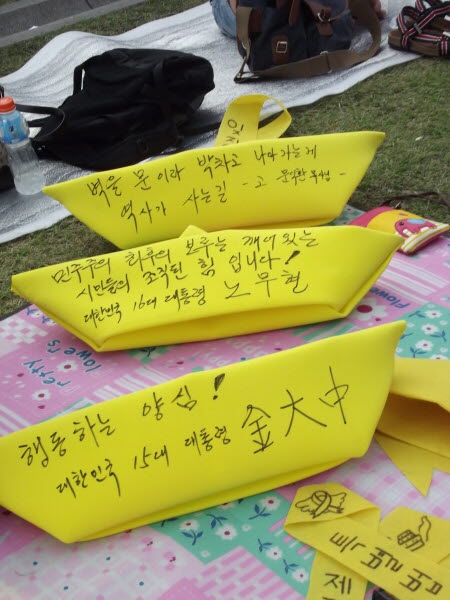 벽을 문이라 박차고 나가는게
역사가 사는길 - 고 문익환 목사님 -
민주주의 최후의 보루는 깨어있는
시민들의 조직된 힘입니다!
대한민국 16대 대통령 노무현
행동하는 양심!
대한민국 15대 대통령 金大中
pretty
flowers
제